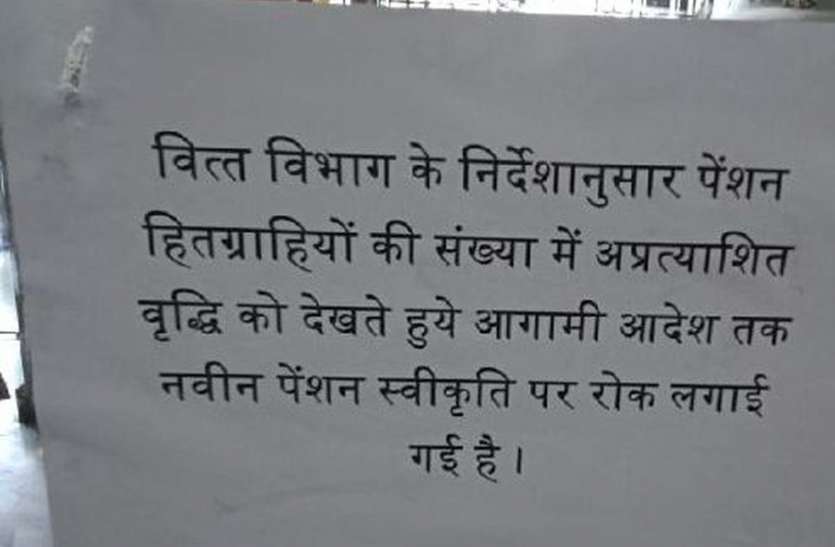 वित्त विभाग के निर्देशानुसार पेंशन
हितग्राहियों की संख्या में अप्रत्याशित
वृद्धि को देखते हुये आगामी आदेश तक
नवीन पेंशन स्वीकृति पर रोक लगाई
गई है।